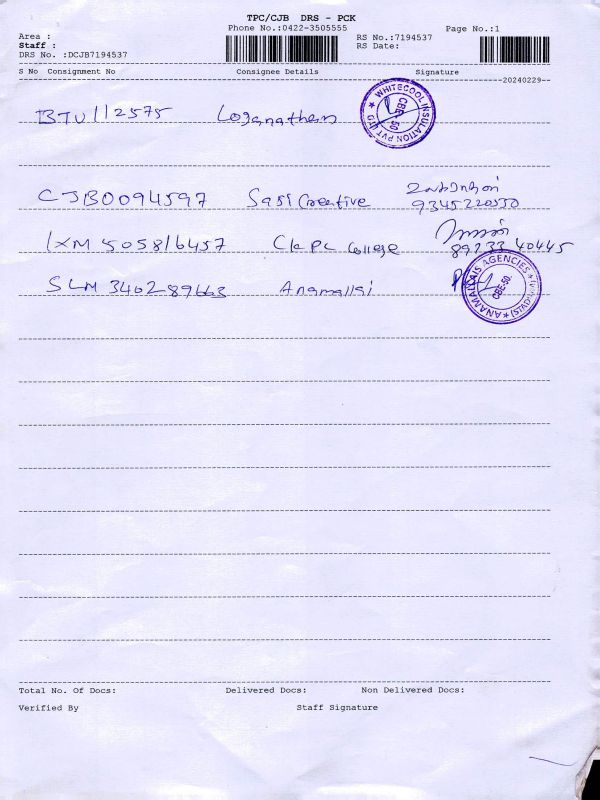 TPC/CJB DRS - PCK
Phone No.:0422-3505555
Page No.:1
Area :
Staff :
DRS No. :DCJB7194537
RS No.:7194537
RS Date:
S No Consignment No Consignee Details Signature
20240229
BTU112575 Loganathan
WHITECOOL INSULATION PVT LTD
CBE-50
CJB0094597 Sasi Creative
9345220550
IXM 505816457 CKPC College
89233 40445
SLM 340289663 Anamallai
ANAMALLAIS AGENCIES
CBE-50.
Total No. Of Docs: Delivered Docs: Non Delivered Docs:
Verified By Staff Signature